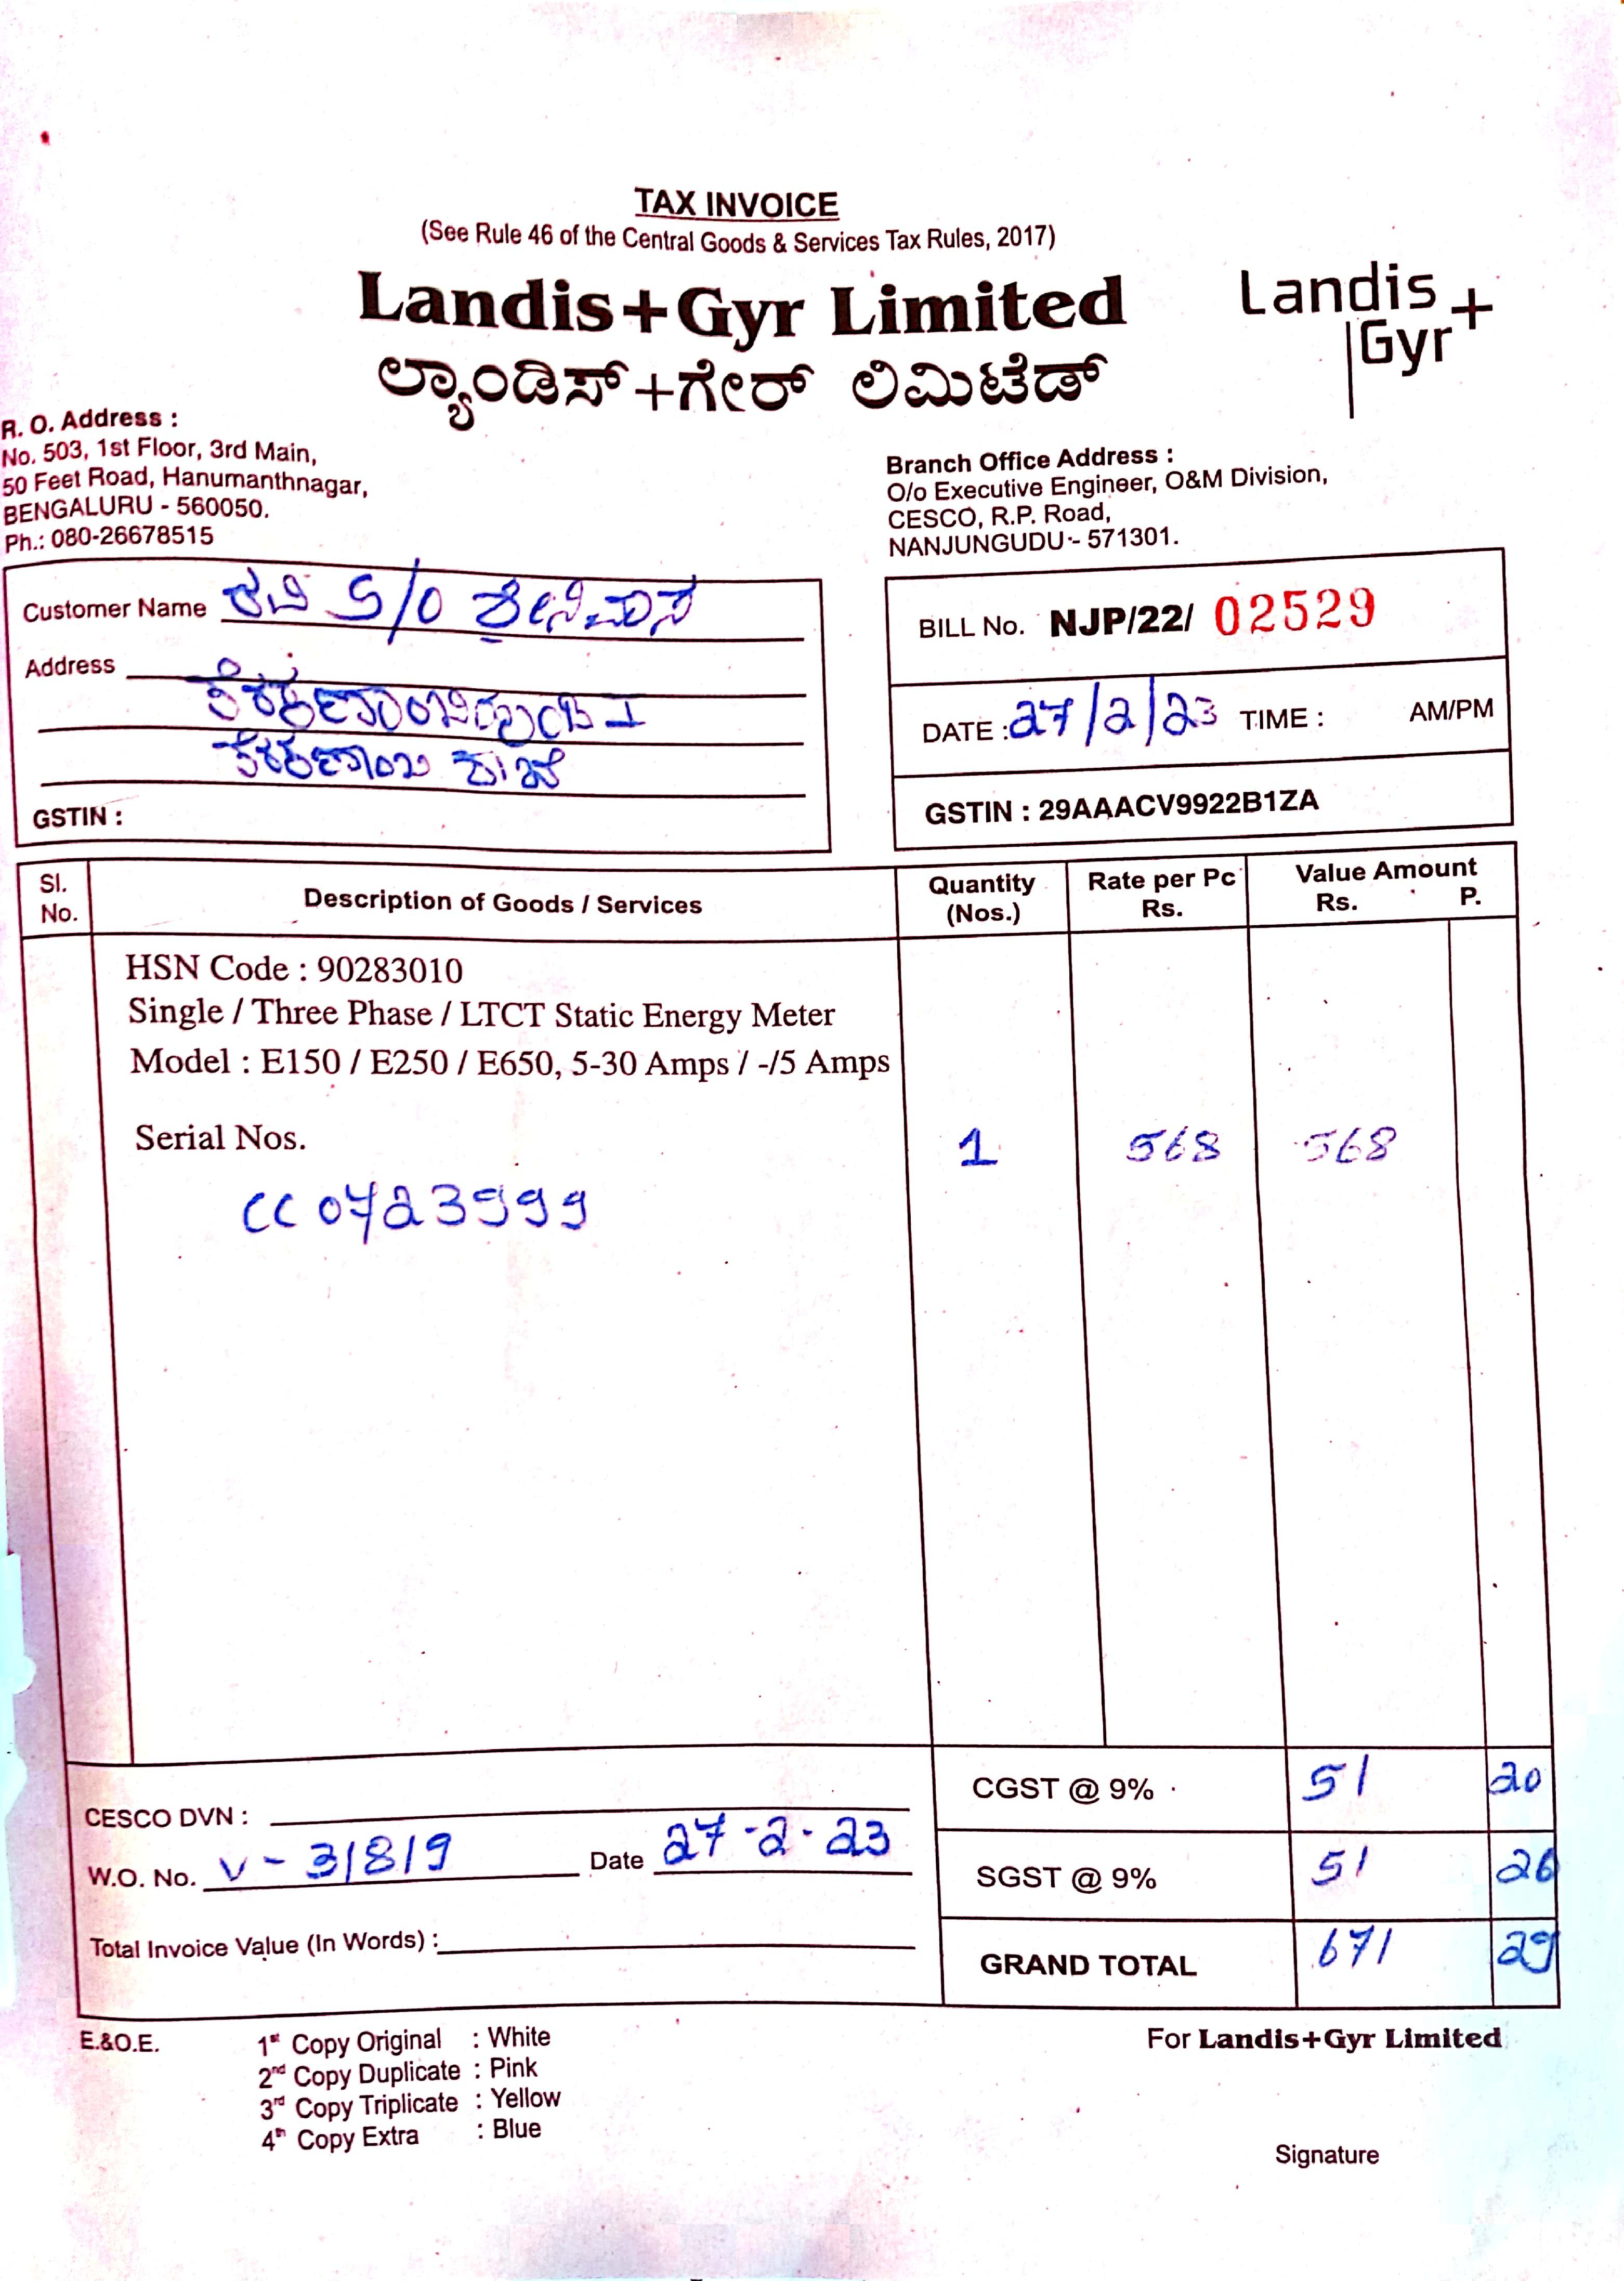 TAX INVOICE
(See Rule 46 of the Central Goods & Services Tax Rules, 2017)
Landis+Gyr Limited
Landis+
Gyr
ಲ್ಯಾಂಡಿಸ್+ಗೇರ್ ಲಿಮಿಟೆಡ್
R. O. Address :
No. 503, 1st Floor, 3rd Main,
50 Feet Road, Hanumanthnagar,
BENGALURU - 560050.
Ph.: 080-26678515
Branch Office Address :
O/o Executive Engineer, O&M Division,
CESCO, R.P. Road,
NANJUNGUDU - 571301.
Customer Name ರವಿ S/O ಶ್ರೀನಿವಾಸ
Address
GSTIN :
BILL No. NJP/22/ 02529
DATE : 27/2/23 TIME : AM/PM
GSTIN : 29AAACV9922B1ZA
Sl. No. Description of Goods / Services Quantity (Nos.) Rate per Pc Rs. Value Amount Rs. P.
HSN Code : 90283010
Single / Three Phase / LTCT Static Energy Meter
Model : E150 / E250 / E650, 5-30 Amps / -/5 Amps
Serial Nos. 1 568 568
CC0723999
CGST @ 9% 51 20
CESCO DVN :
W.O. No. V-31819 Date 27-2-23
SGST @ 9% 51 26
Total Invoice Value (In Words) :
GRAND TOTAL 671 29
E.&O.E.
1st Copy Original : White
2nd Copy Duplicate : Pink
3rd Copy Triplicate : Yellow
4th Copy Extra : Blue
For Landis+Gyr Limited
Signature